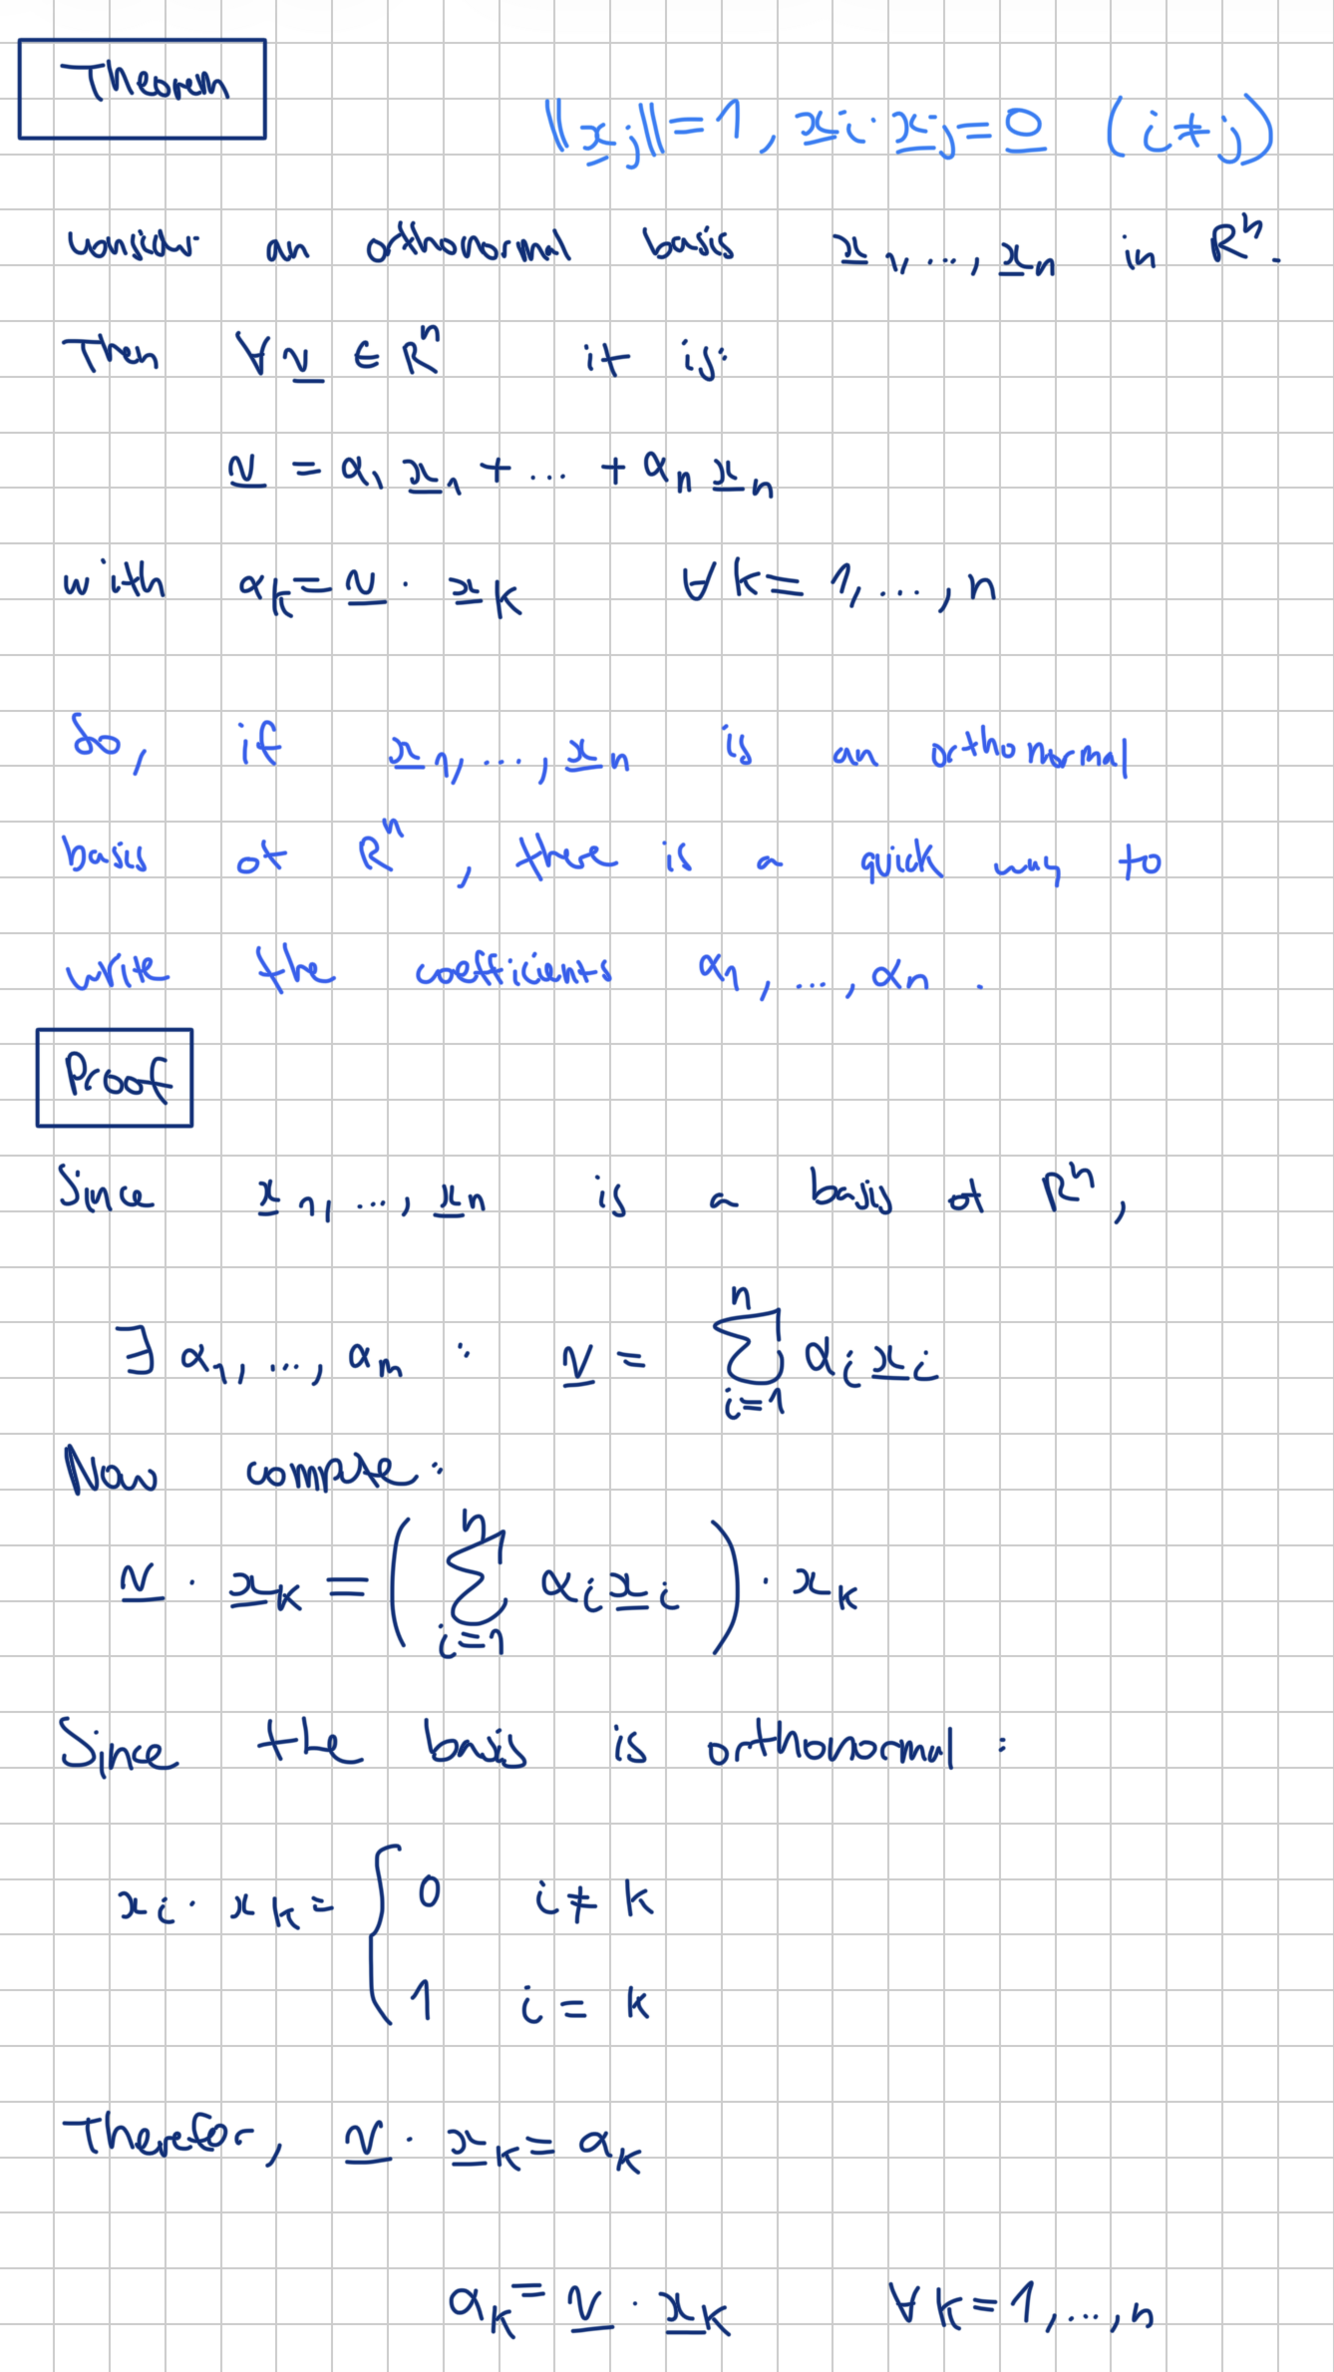 Theorem
||x̲j|| = 1, x̲i · x̲j = 0̲ (i ≠ j)
consider an orthonormal basis x̲1, ..., x̲n in Rⁿ.
Then ∀ v̲ ∈ Rⁿ it is:
v̲ = α1 x̲1 + ... + αn x̲n
with αk = v̲ · x̲k ∀ k = 1, ..., n
So, if x̲1, ..., x̲n is an orthonormal
basis of Rⁿ, there is a quick way to
write the coefficients α1, ..., αn .
Proof
Since x̲1, ..., x̲n is a basis of Rⁿ,
∃ α1, ..., αm : v̲ = ∑_{i=1}^{n} αi x̲i
Now compute:
v̲ · x̲k = ( ∑_{i=1}^{n} αi x̲i ) · xk
Since the basis is orthonormal :
xi · xk = { 0 i ≠ k
1 i = k
Therefor, v̲ · x̲k = αk
αk = v̲ · x̲k ∀ k = 1, ..., n